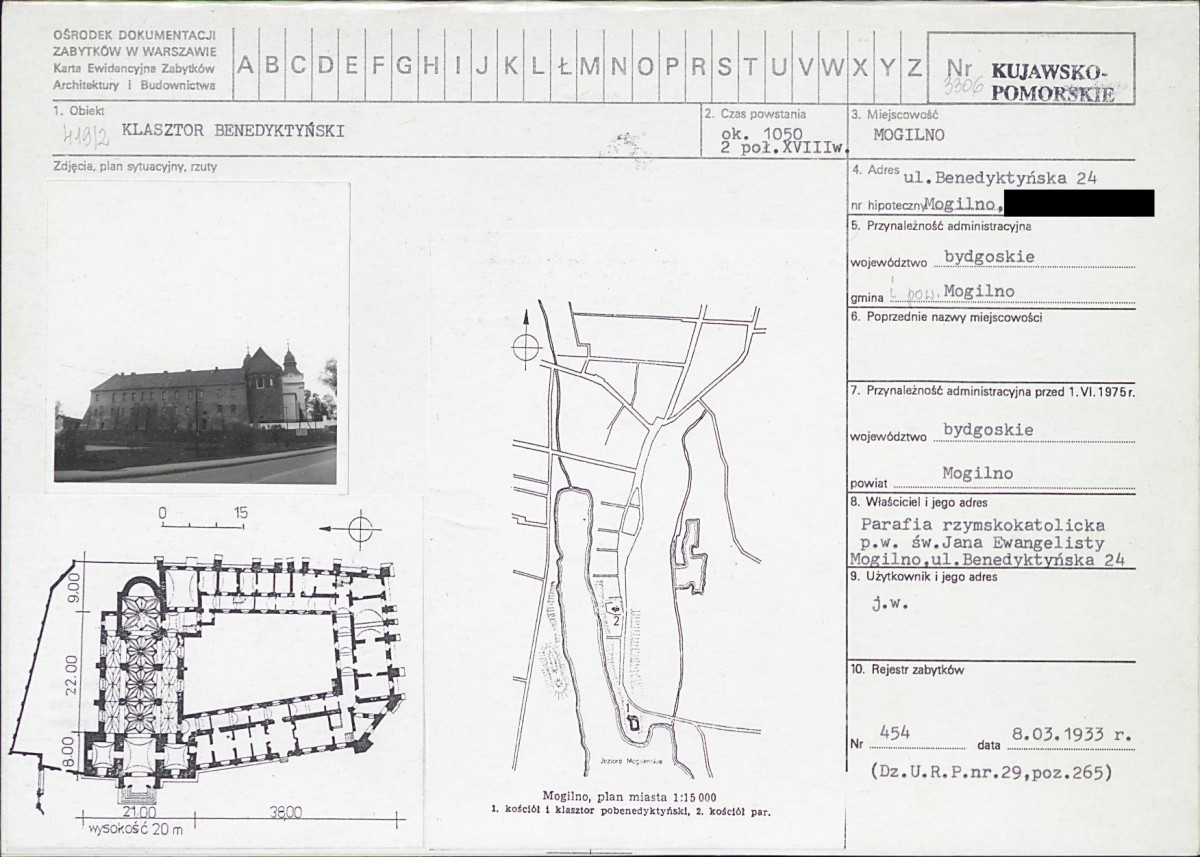 OŚRODEK DOKUMENTACJI
ZABYTKÓW W WARSZAWIE
Karta Ewidencyjna Zabytków
Architektury i Budownictwa
A B C D E F G H I J K L Ł M N O P R S T U V W X Y Z
Nr
3306
KUJAWSKO-
POMORSKIE
1. Obiekt
419/2 KLASZTOR BENEDYKTYŃSKI
2. Czas powstania
ok. 1050
2 poł.XVIIIw.
3. Miejscowość
MOGILNO
Zdjęcia, plan sytuacyjny, rzuty
4. Adres ul.Benedyktyńska 24
nr hipoteczny Mogilno,
5. Przynależność administracyjna
województwo bydgoskie
gmina i pow. Mogilno
6. Poprzednie nazwy miejscowości
7. Przynależność administracyjna przed 1.VI.1975r.
województwo bydgoskie
powiat Mogilno
8. Właściciel i jego adres
Parafia rzymskokatolicka
p.w. św.Jana Ewangelisty
Mogilno,ul.Benedyktyńska 24
9. Użytkownik i jego adres
j.w.
10. Rejestr zabytków
Nr 454 data 8.03.1933 r.
(Dz.U.R.P.nr.29,poz.265)
0 15
9.00
22.00
8.00
21.00 38,00
wysokość 20 m
2
1
Jezioro Mogileńskie
Mogilno, plan miasta 1:15 000
1. kościół i klasztor pobenedyktyński, 2. kościół par.